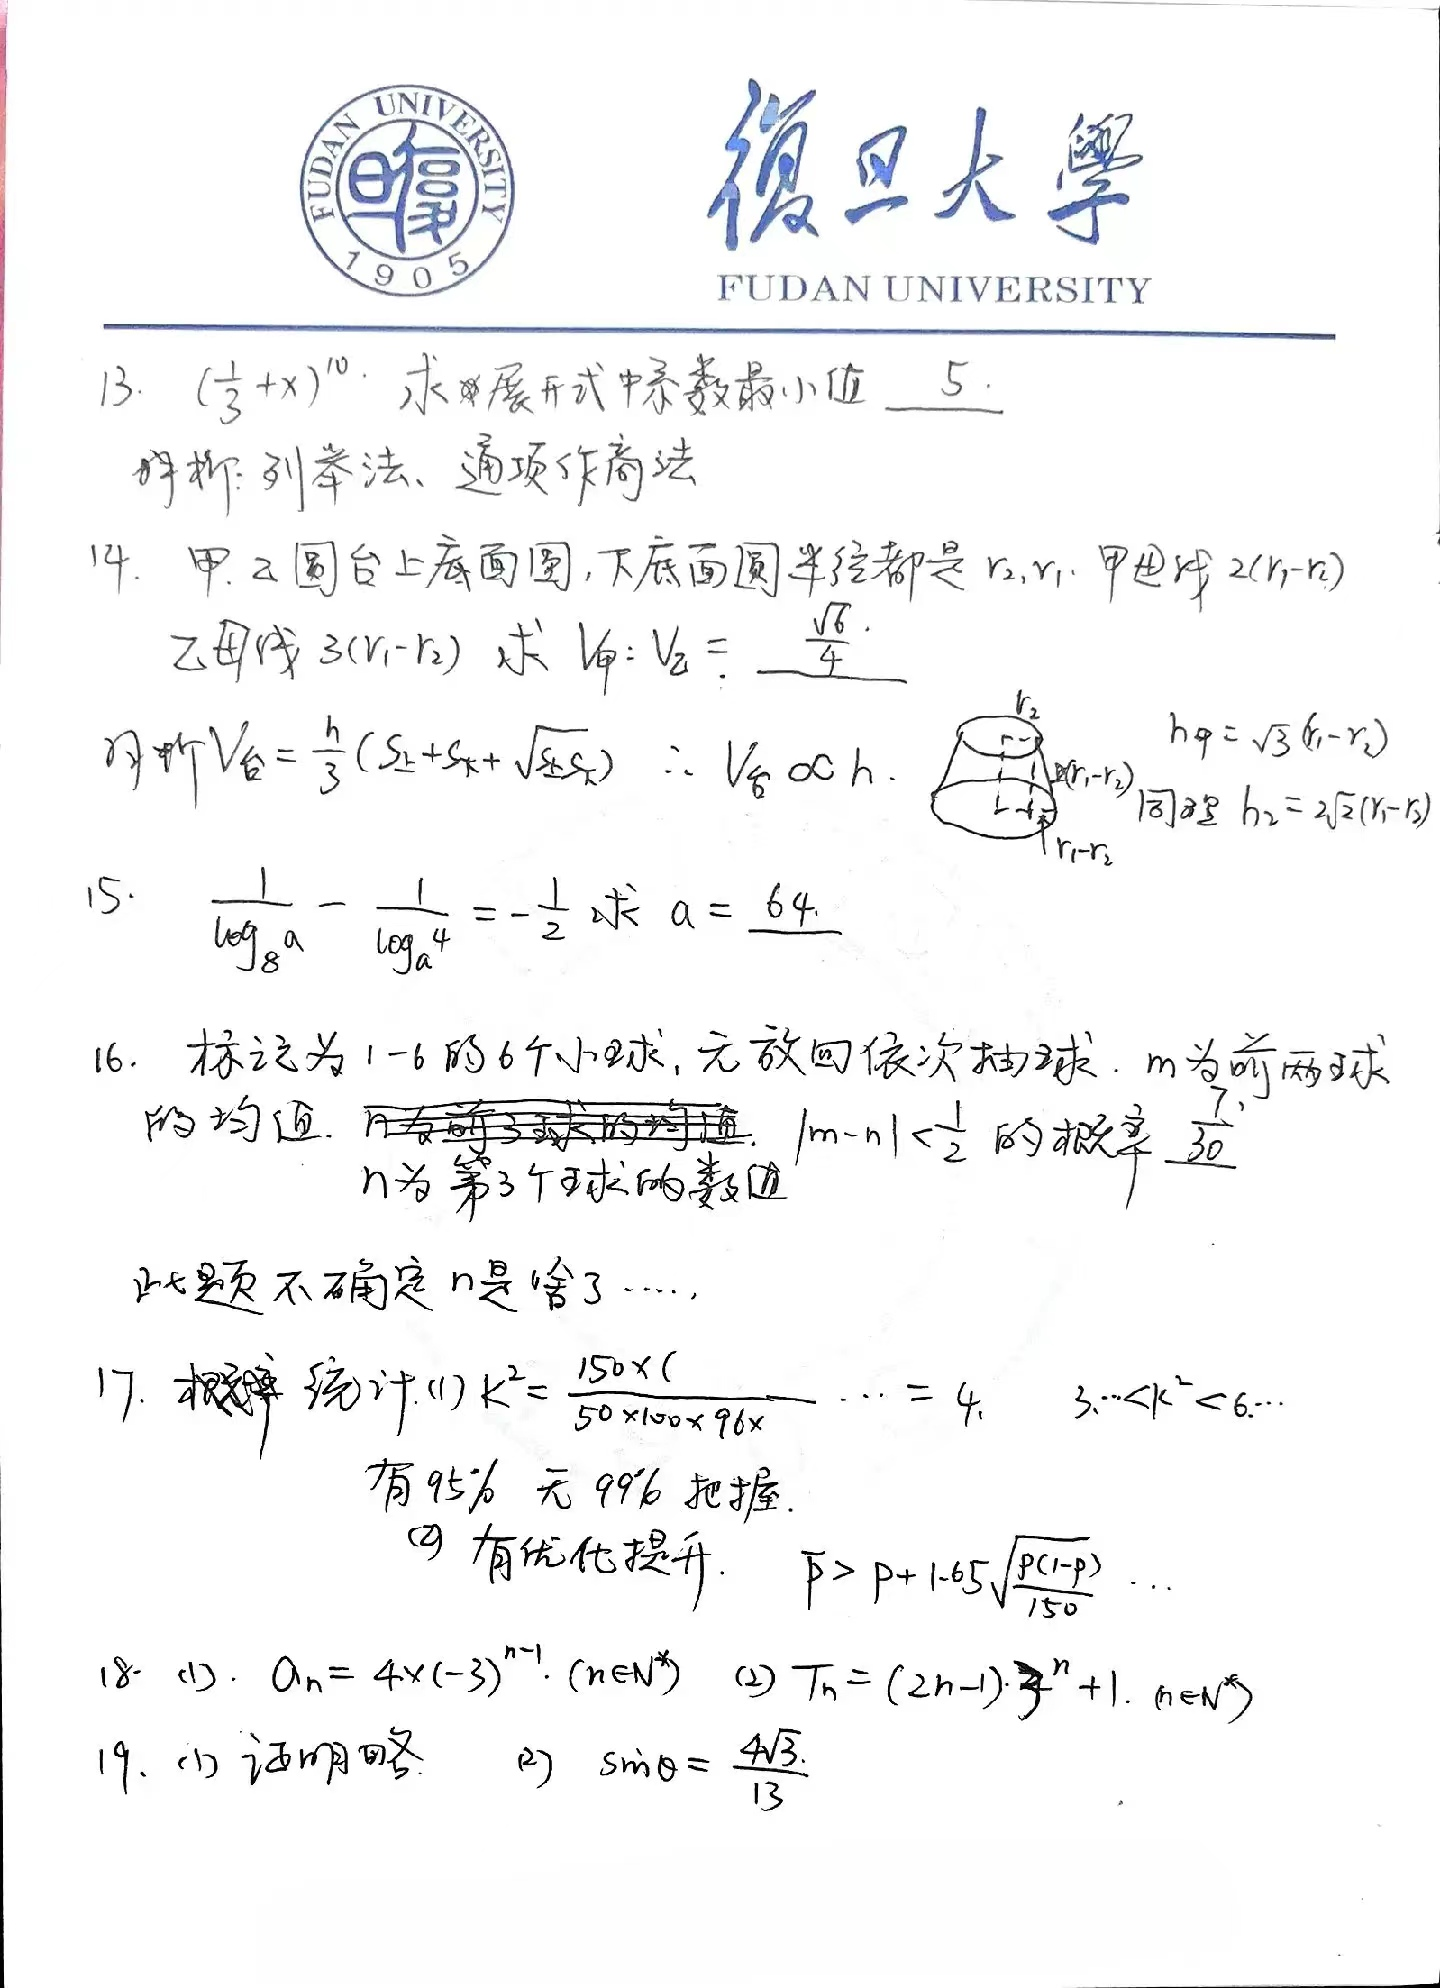 FUDAN UNIVERSITY
1905
復旦大學
FUDAN UNIVERSITY
13. (1/3+x)^10. 求展开式中系数最小值 5.
解析: 列举法、通项作商法
14. 甲.乙圆台上底面圆,下底面圆半径都是 r₂,r₁. 甲母线 2(r₁-r₂)
乙母线 3(r₁-r₂) 求 V甲:V乙= √6/4.
解析 V台=h/3(S上+S下+√S上S下) ∴ V台∝h.
r₂
2(r₁-r₂)
r₁-r₂
h甲=√3(r₁-r₂)
同理 h₂=2√2(r₁-r₂)
15. 1/log₈a - 1/logₐ4 = -1/2 求 a= 64.
16. 标记为1-6的6个小球,无放回依次抽球. m为前两球
的均值. n为前3球的均值. |m-n|<1/2 的概率 7/30
n为第3个球的数值
此题不确定n是啥了.....
17. 概率统计.(1) K²= 150×( / 50×100×96× ... = 4. 3...<K²<6...
有95% 无99%把握.
(2) 有优化提升. p̄>p+1.65√(p(1-p)/150) ...
18. (1). aₙ=4×(-3)^(n-1). (n∈N*) (2) Tₙ=(2n-1)·3ⁿ+1. (n∈N*)
19. (1) 证明略. (2) sinθ= 4√3/13